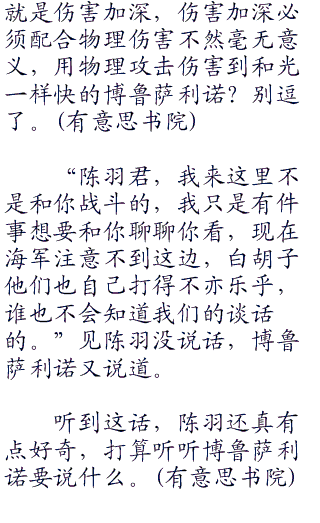 就是伤害加深，伤害加深必
须配合物理伤害不然毫无意
义，用物理攻击伤害到和光
一样快的博鲁萨利诺？别逗
了。(有意思书院)
“陈羽君，我来这里不
是和你战斗的，我只是有件
事想要和你聊聊你看，现在
海军注意不到这边，白胡子
他们也自己打得不亦乐乎，
谁也不会知道我们的谈话
的。”见陈羽没说话，博鲁
萨利诺又说道。
听到这话，陈羽还真有
点好奇，打算听听博鲁萨利
诺要说什么。(有意思书院)